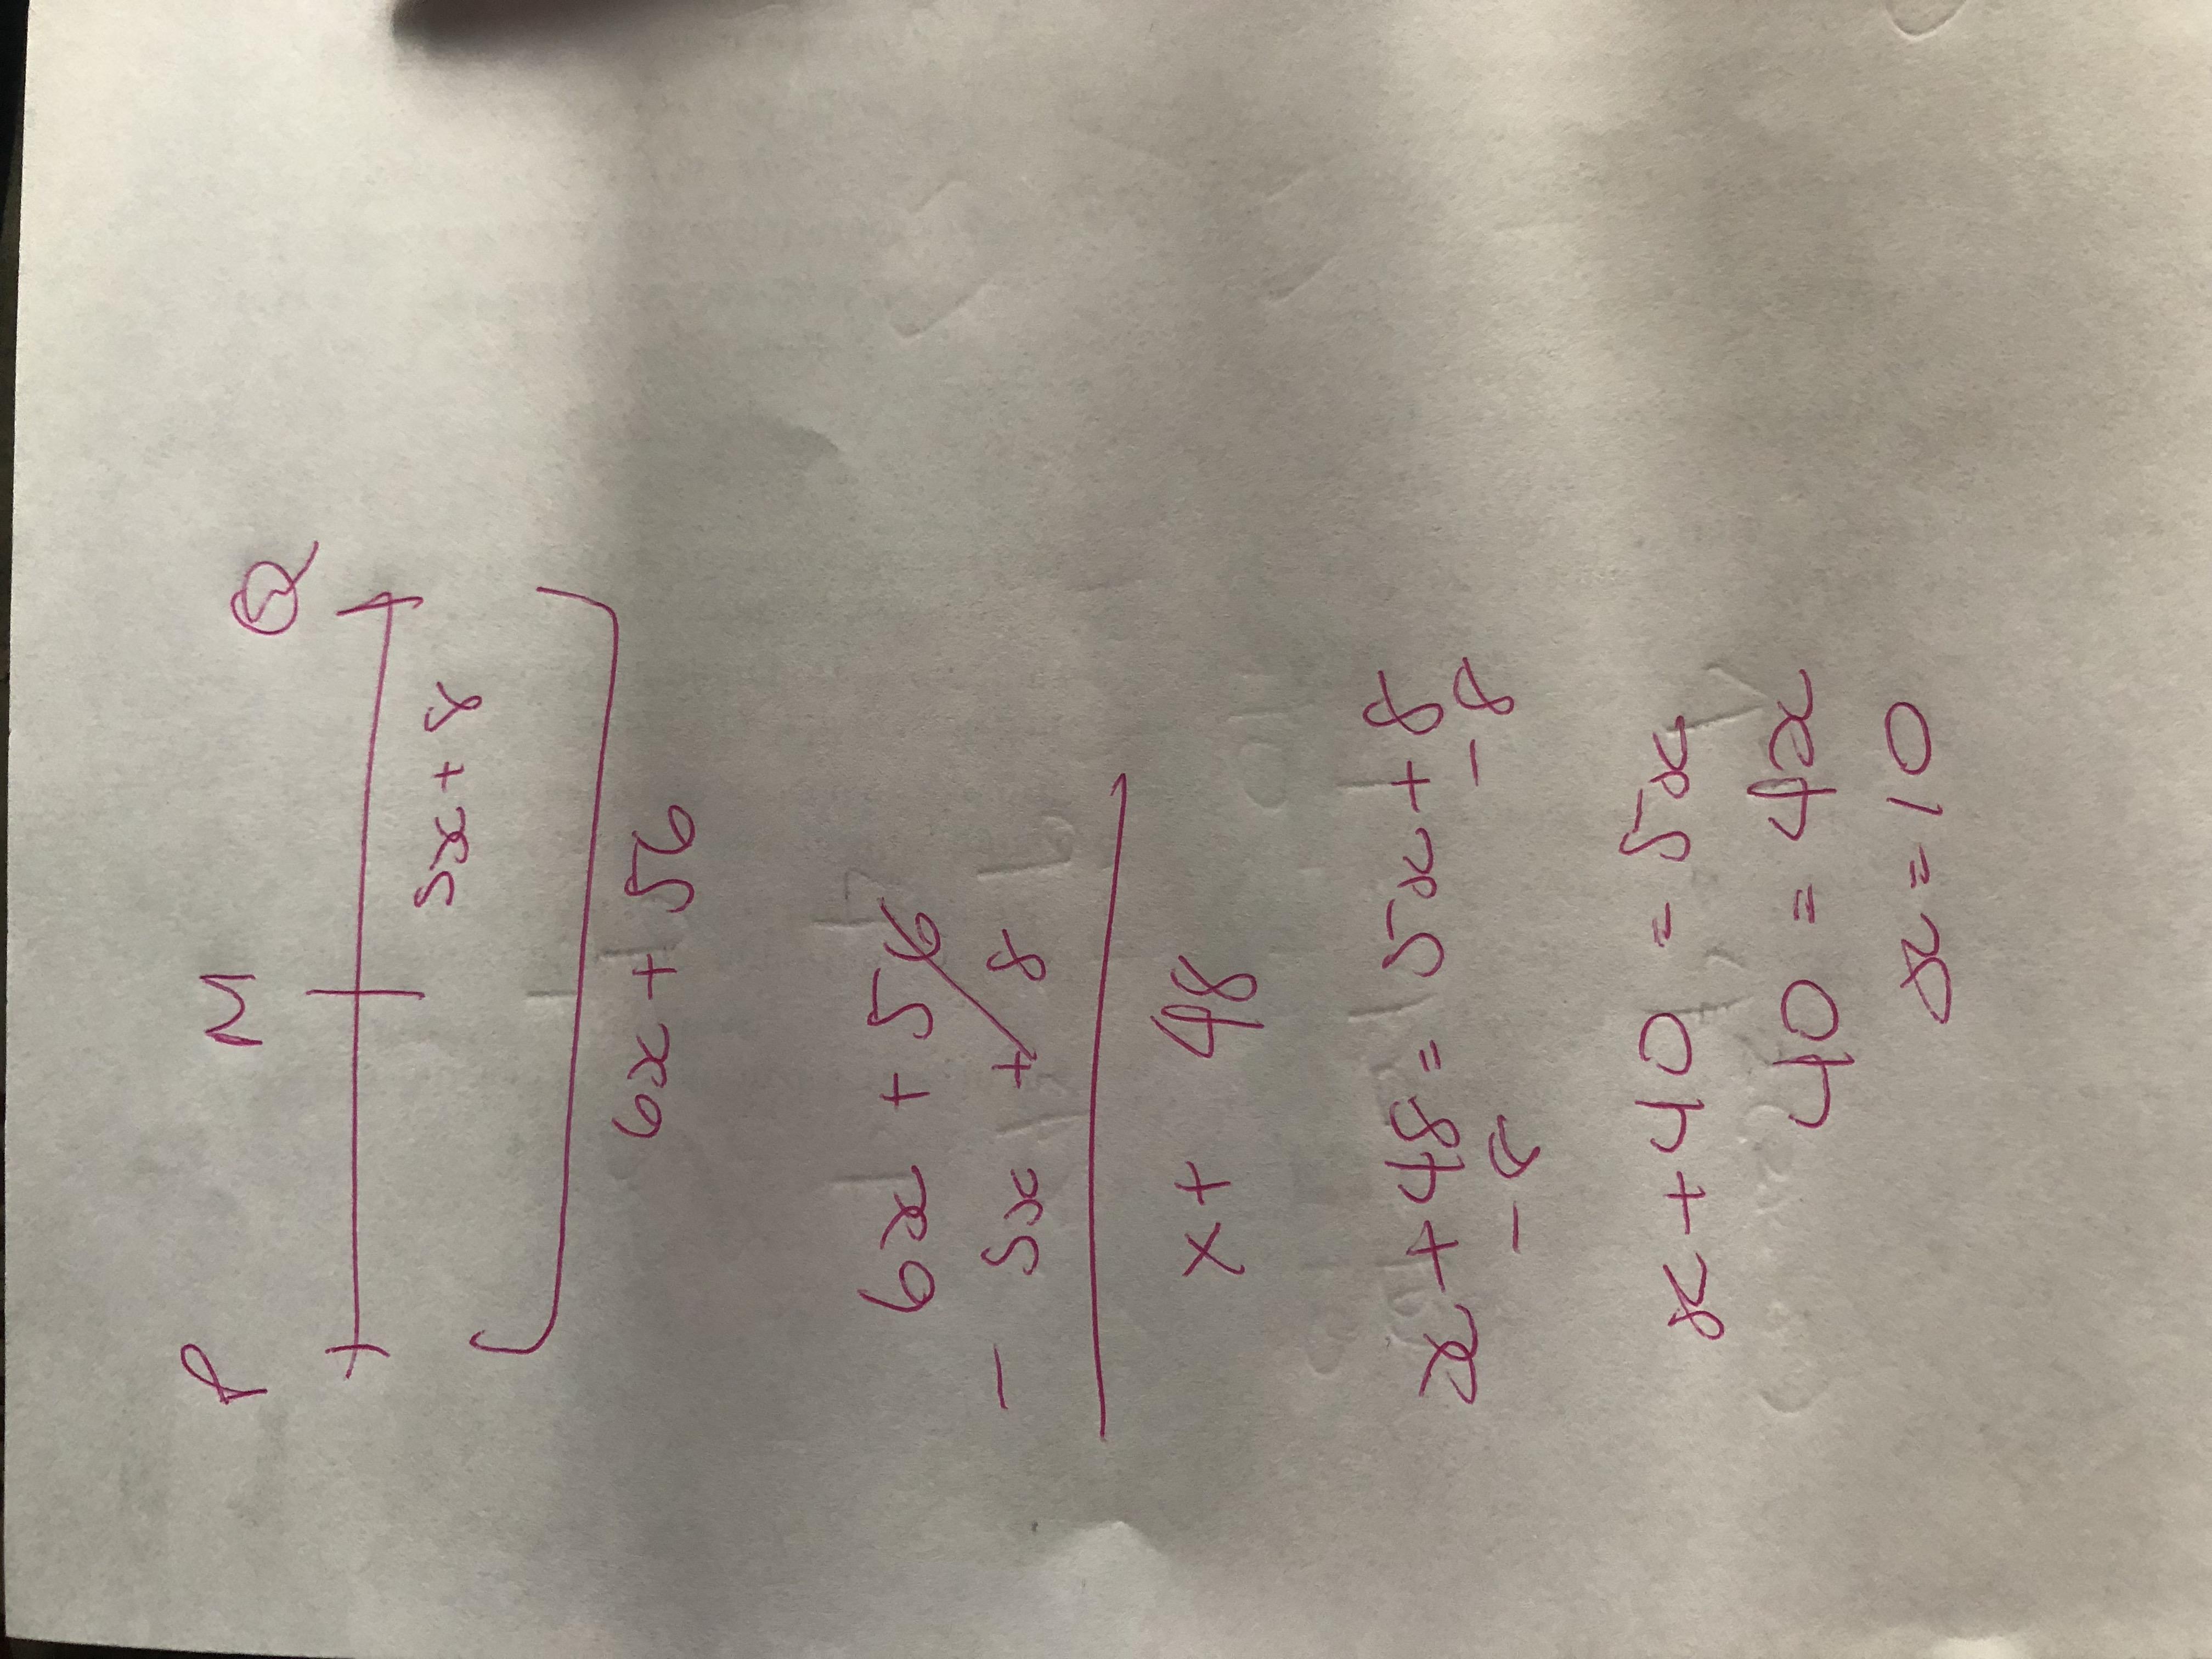 P M Q
5x + 8
6x + 56
6x + 56
- 5x + 8
x + 48
x + 48 = 5x + 8
- 8 - 8
x + 40 = 5x
40 = 4x
x = 10